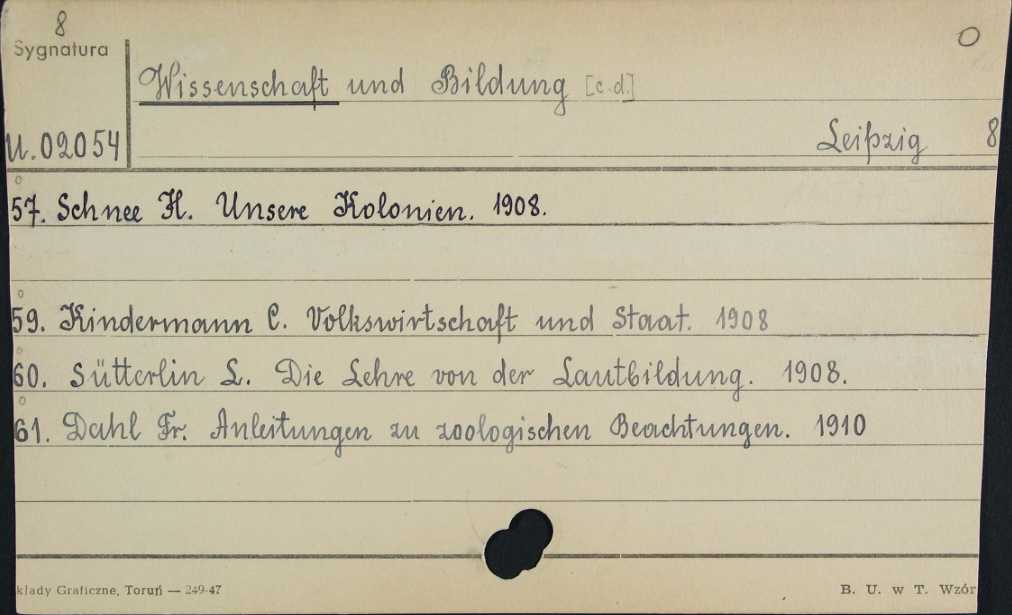 8
Sygnatura
O
Wissenschaft und Bildung [c.d.]
U.02054
Leipzig 8
57. Schnee H. Unsere Kolonien. 1908.
59. Kindermann C. Volkswirtschaft und Staat. 1908
60. Sütterlin L. Die Lehre von der Lautbildung. 1908.
61. Dahl Fr. Anleitungen zu zoologischen Beachtungen. 1910
kłady Graficzne, Toruń — 249-47
B. U. w T. Wzór